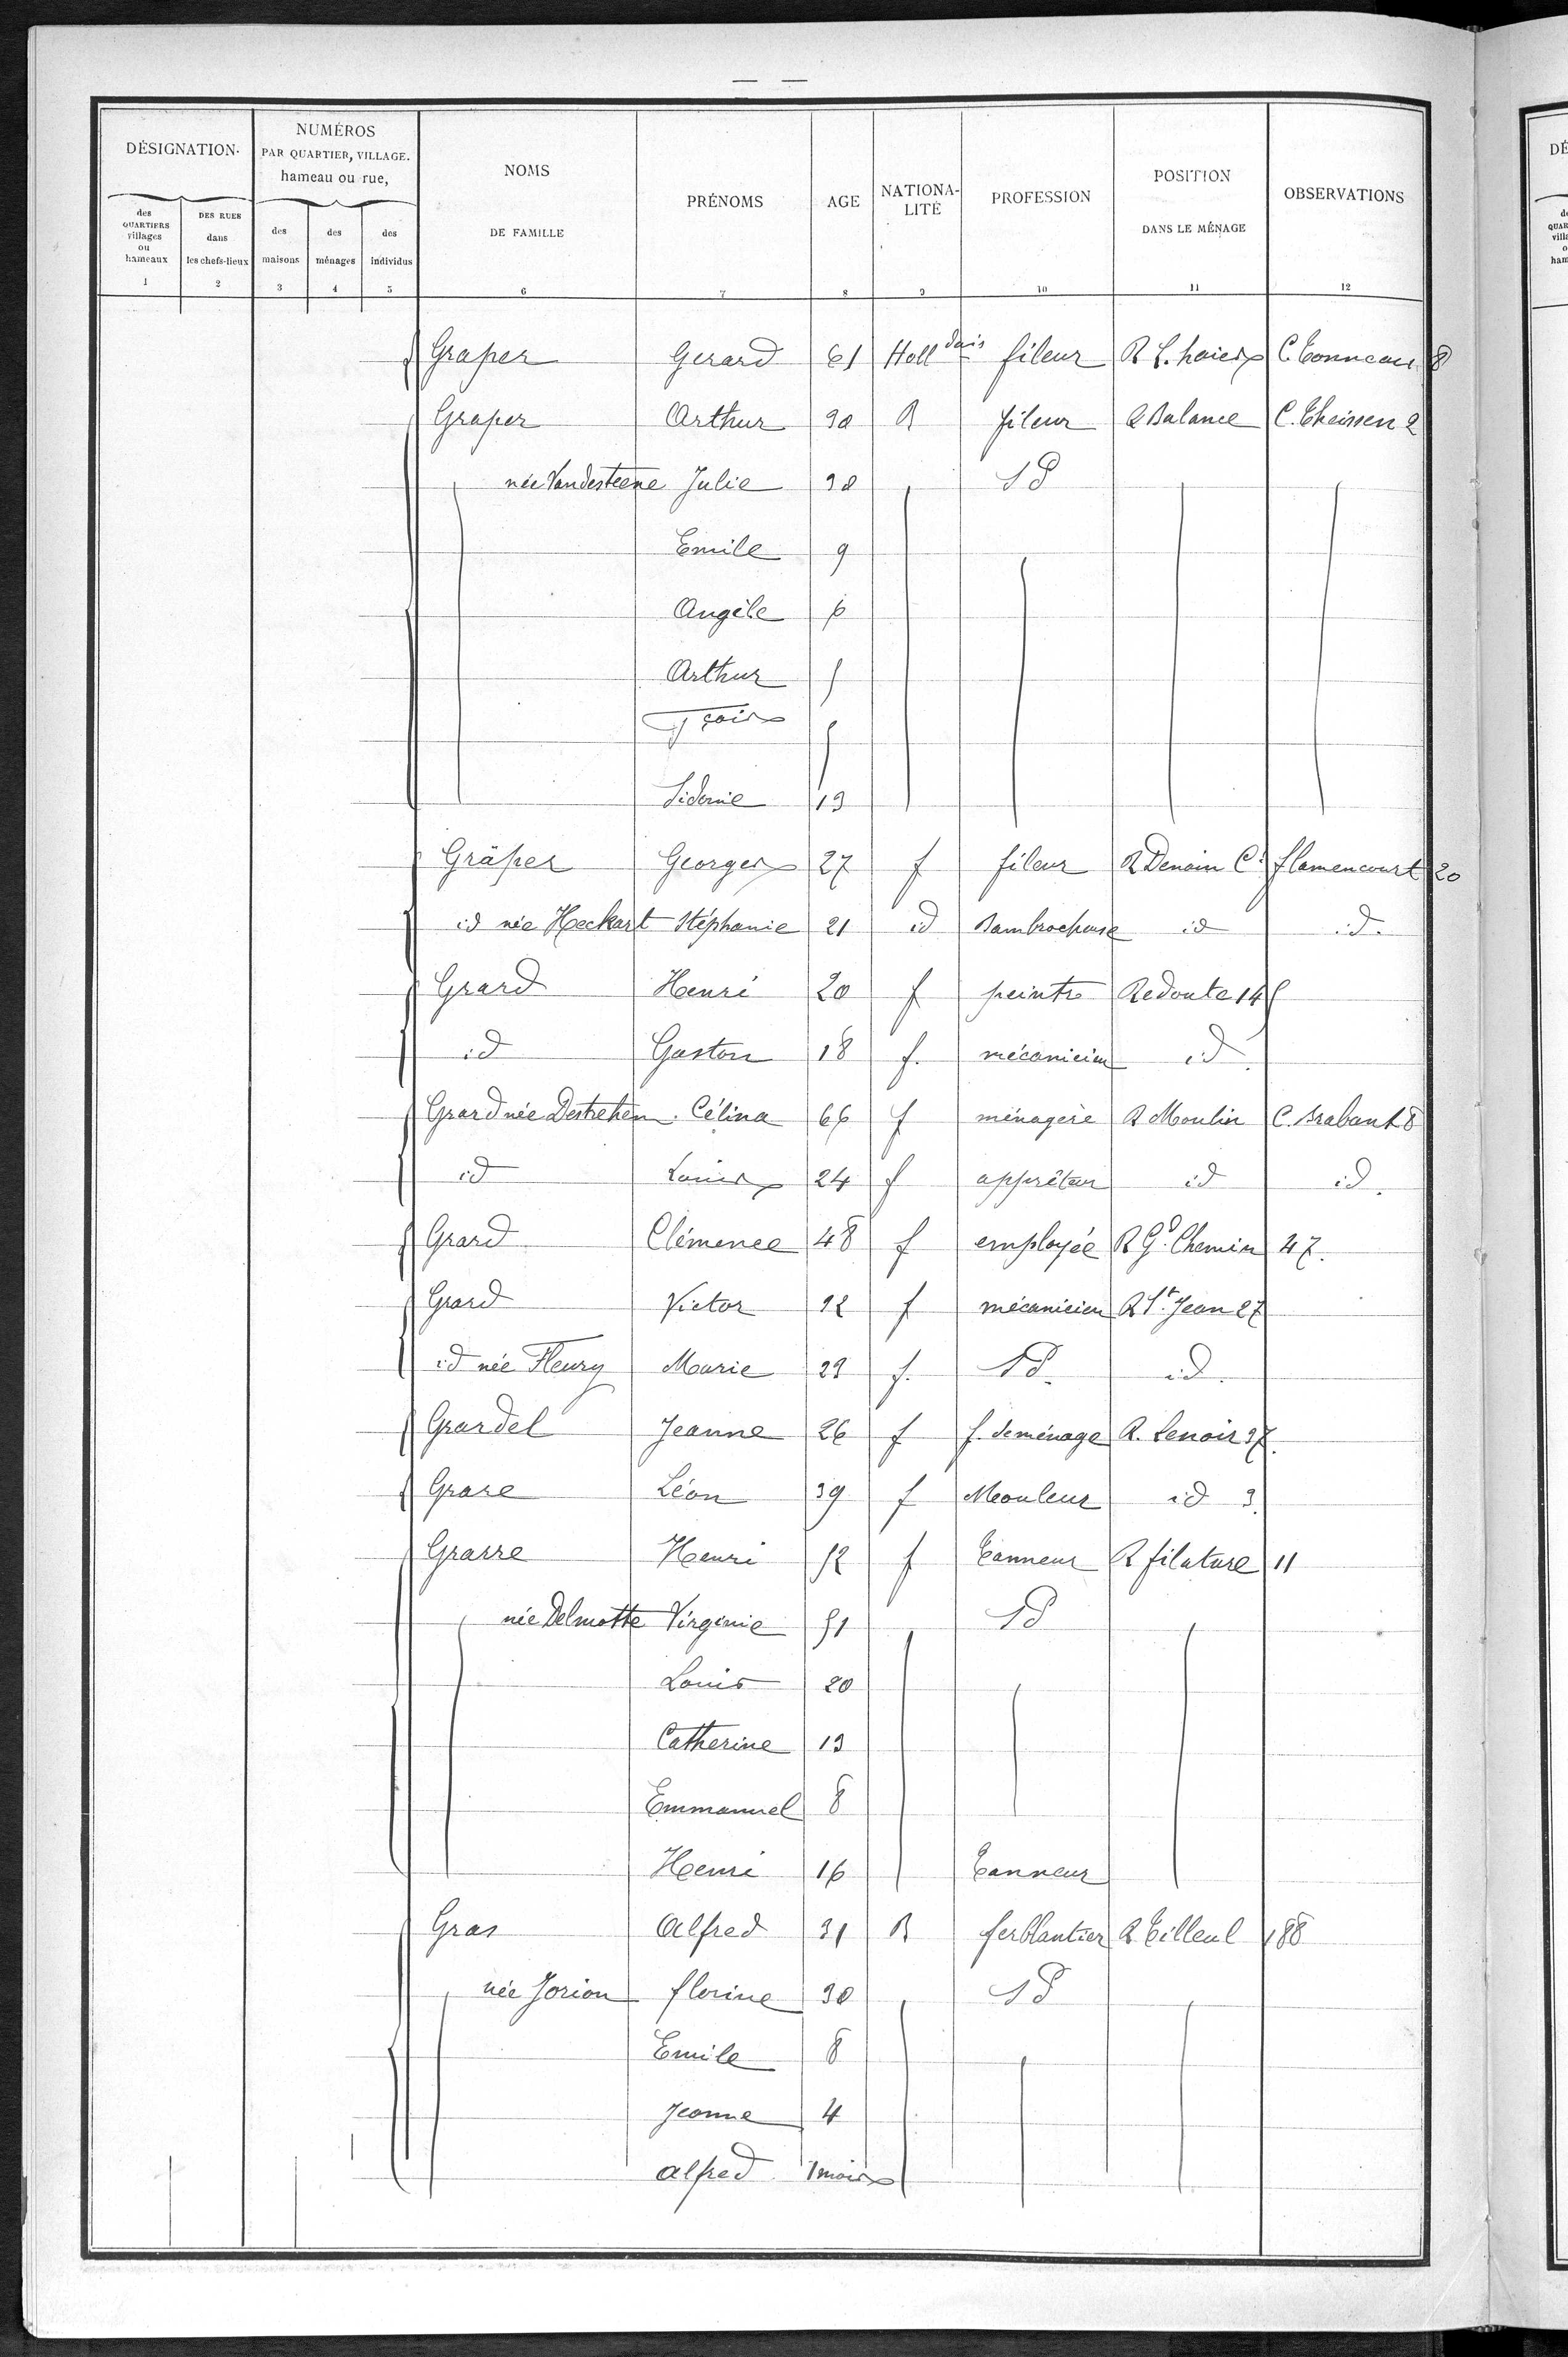 — —
DÉSIGNATION. NUMÉROS PAR QUARTIER, VILLAGE. hameau ou rue, NOMS DE FAMILLE PRÉNOMS AGE NATIONA-LITÉ PROFESSION POSITION DANS LE MÉNAGE OBSERVATIONS
des QUARTIERS villages ou hameaux DES RUES dans les chefs-lieux des maisons des ménages des individus
1 2 3 4 5 6 7 8 9 10 11 12
Graper Gerard 61 Holldais fileur R L. haies C. Tonneau 8
Graper Arthur 30 B fileur R Balance C. Theissen 2
née Vandesteene Julie 38 SP
Emile 9
Angèle 6
Arthur 5
Fçois
Sidonie 13
Gräper Georges 27 f fileur R Denain Cr flamencourt 20
id née Heckart Stéphanie 21 id Bambrocheuse id id.
Grard Henri 20 f peintre Redoute 145
id Gaston 18 f. mécanicien id.
Grard née Destrehem Célina 66 f ménagère R Moulin C. Brabant 8
id Louis 24 f apprêteur id id.
Grard Clémence 48 f employée R Gd Chemin 47.
Grard Victor 32 f mécanicien R St Jean 27
id née Fleury Marie 29 f. SP. id.
Grardel Jeanne 26 f f. de ménage R. Lenoir 37.
Grare Léon 39 f Mouleur id 3.
Grarre Henri 52 f Tanneur R filature 11
née Delmotte Virginie 51 SP
Louis 20
Catherine 13
Emmanuel 8
Henri 16 Tanneur
Gras Alfred 31 B ferblantier R Tilleul 188
née Jorion florine 30 SP
Emile 8
Jeanne 4
Alfred 1 mois